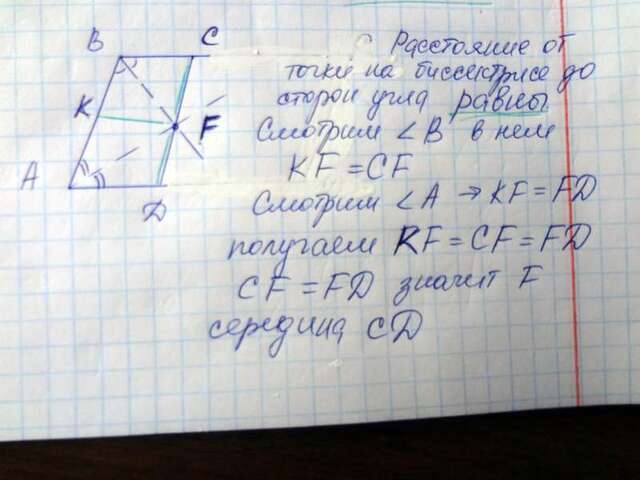 B C
K F
A
D
Расстояние от
точки на биссектрисе до
сторон угла равны
Смотрим ∠B в нем
KF = CF
Смотрим ∠A → KF = FD
получаем KF = CF = FD
CF = FD значит F
середина CD